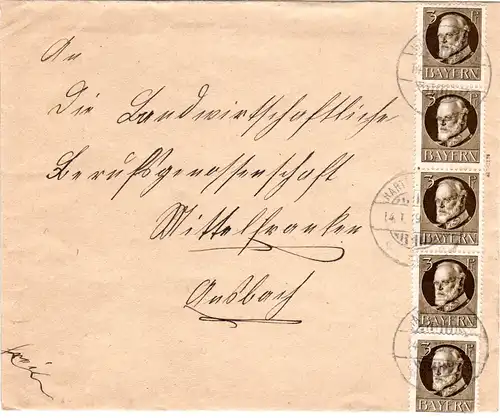 An
Die Landwirtschaftliche
Berufsgenossenschaft
Mittelfranken
Ansbach
frei
3 Pf
BAYERN
3 Pf
BAYERN
3 Pf
BAYERN
3 Pf
BAYERN
3 Pf
BAYERN